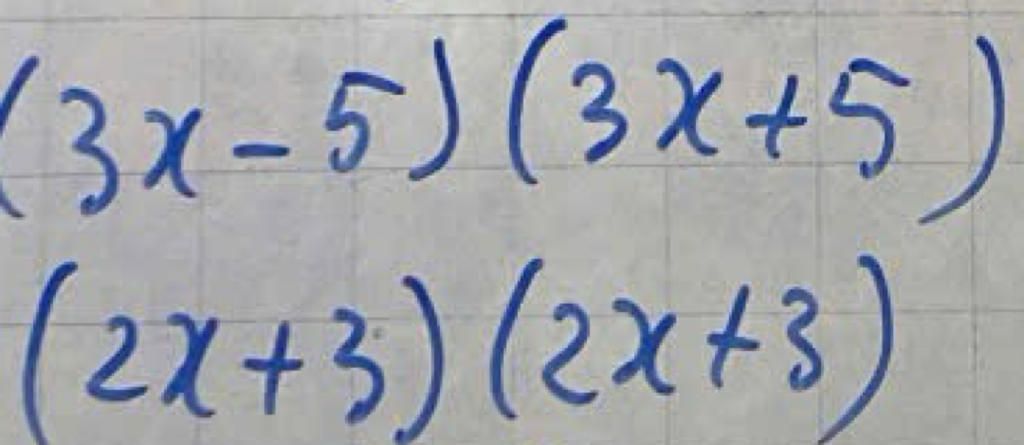 (3x-5)(3x+5)
(2x+3)(2x+3)